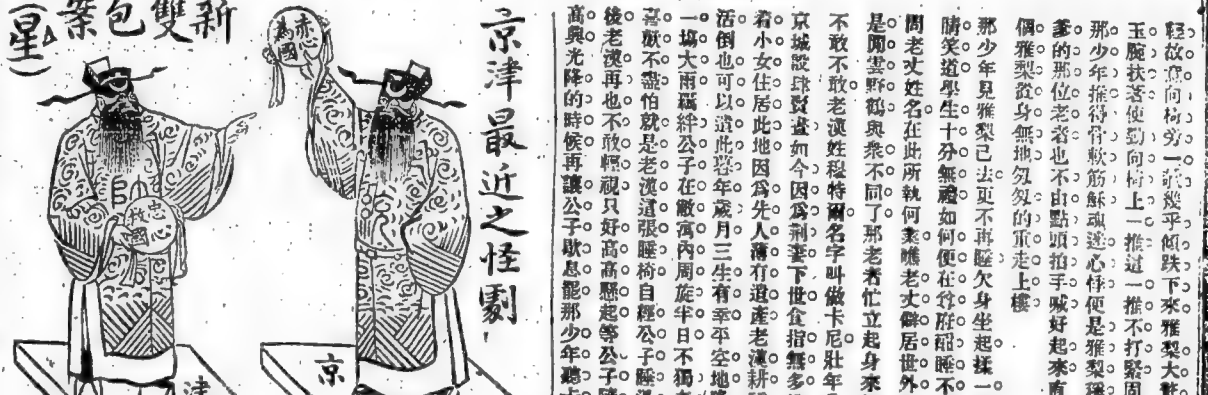 輕故意向椅旁一
幾乎傾跌下來雅梨大
玉腕扶著便勁向椅上一推道一推不打緊
那少年推得骨軟筋酥魂迷心悸便是雅梨
爹的那位老者也不由點頭拍手喊好起來
個雅梨從身無地匆匆的重走上樓
那少年見雅梨已去更不再睡欠身坐起揉一
睛笑道學生十分無禮如何便在竹府酣睡不
問老丈姓名在此所執何業瞧老丈僻居世外
是閒雲野鶴與衆不同了那老者忙立起身來
不敢不敢老漢姓穆特爾名字叫做卡尼壯年
京城設肆賣畫如今因爲荆妻下世食指無多
着小女住居此地因爲先人薄有遺產老漢耕
活倒也可以遣此暮年歲月三生有幸平空地
一塲大雨羈絆公子在敝寓內周旋半日不獨
喜歡不盡怕就是老漢這張睡椅自經公子睡
後老漢再也不敢輕視只好高高懸起等公子
高興光降的時候再讓公子歇息罷那少年聽
京津最近之怪劇
赤心為國
京
新雙包案
(星)
忠心救國
津